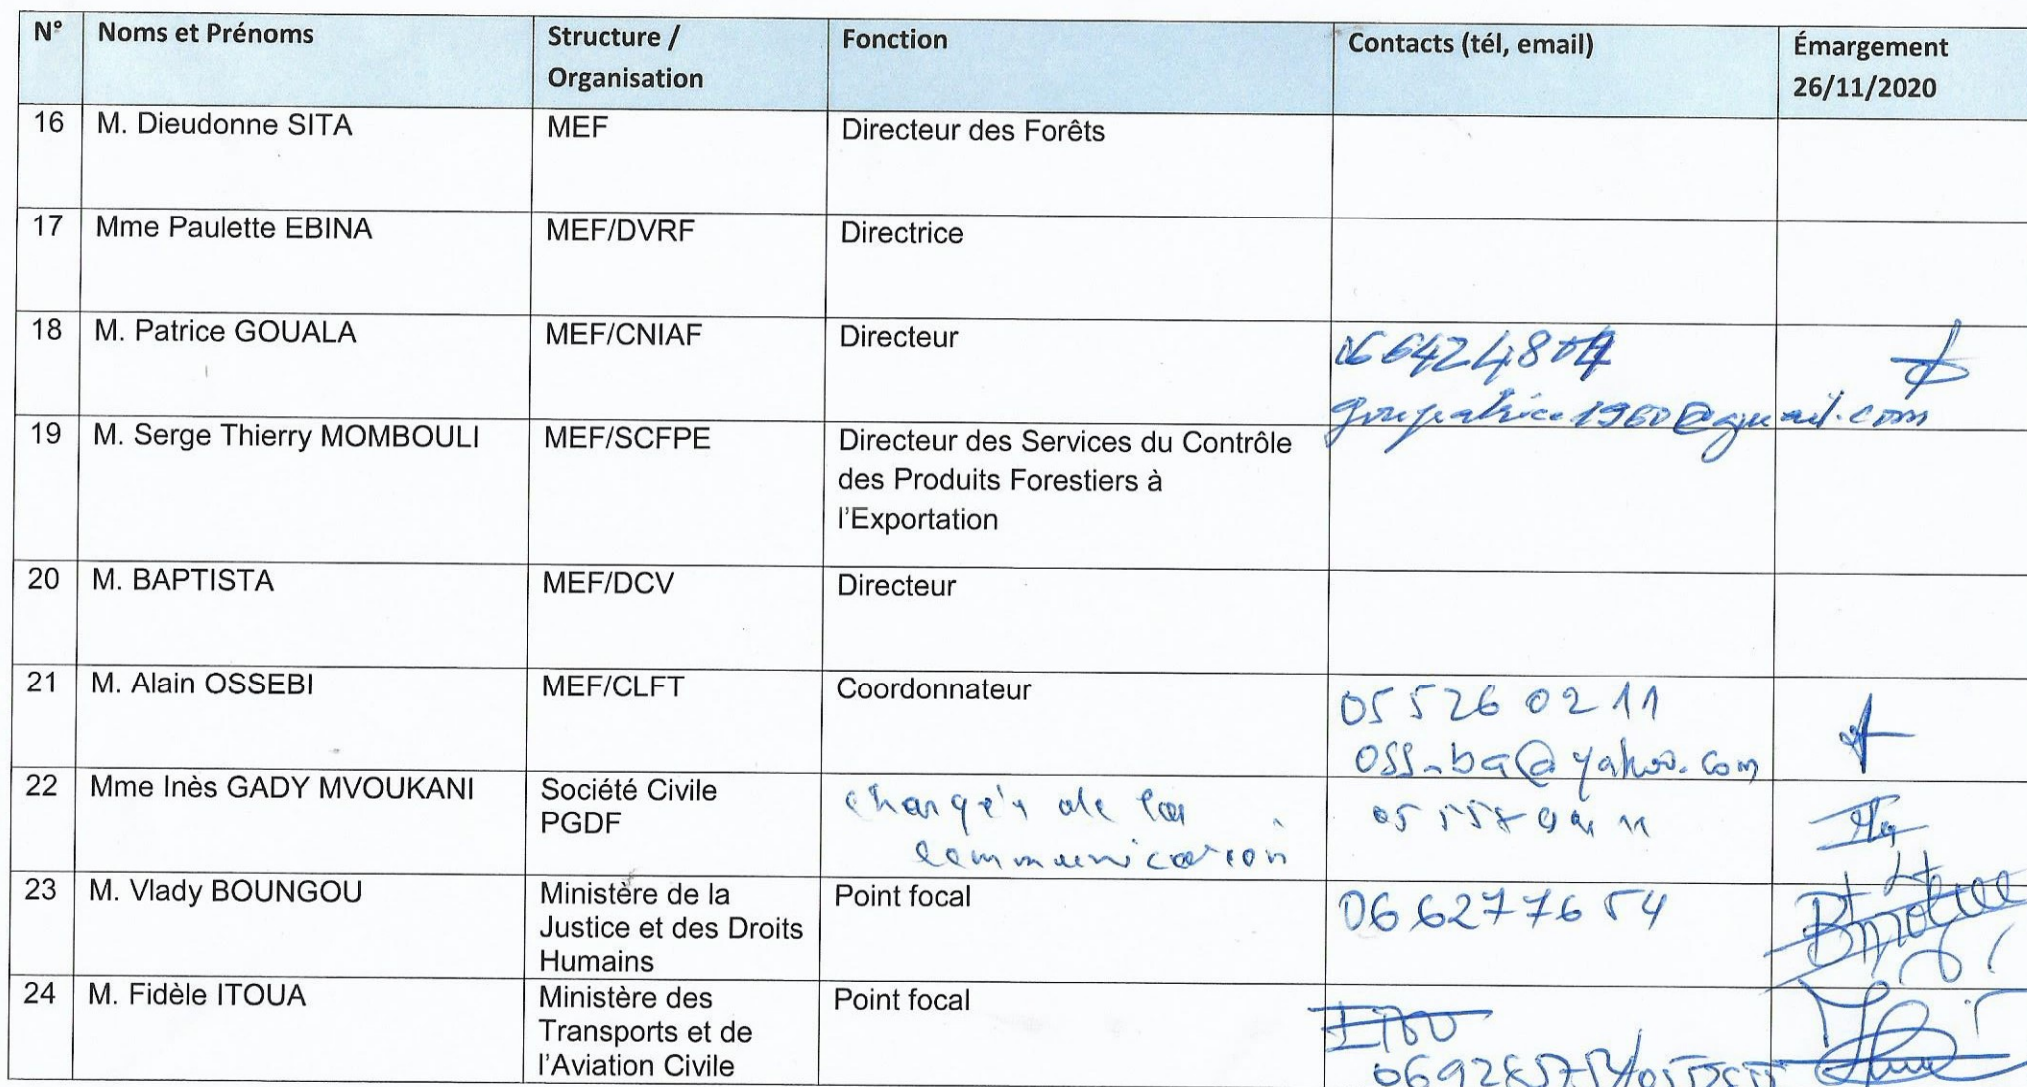 N° Noms et Prénoms Structure / Organisation Fonction Contacts (tél, email) Émargement 26/11/2020
16 M. Dieudonne SITA MEF Directeur des Forêts
17 Mme Paulette EBINA MEF/DVRF Directrice
18 M. Patrice GOUALA MEF/CNIAF Directeur
goupatrice1960@gmail.com
19 M. Serge Thierry MOMBOULI MEF/SCFPE Directeur des Services du Contrôle
des Produits Forestiers à
l'Exportation
20 M. BAPTISTA MEF/DCV Directeur
21 M. Alain OSSEBI MEF/CLFT Coordonnateur 05 526 02 11
oss_ba@yahoo.com
22 Mme Inès GADY MVOUKANI Société Civile
PGDF
de la
communication
23 M. Vlady BOUNGOU Ministère de la Point focal 06 627 76 54
Justice et des Droits
Humains
24 M. Fidèle ITOUA Ministère des Point focal
Transports et de
l'Aviation Civile